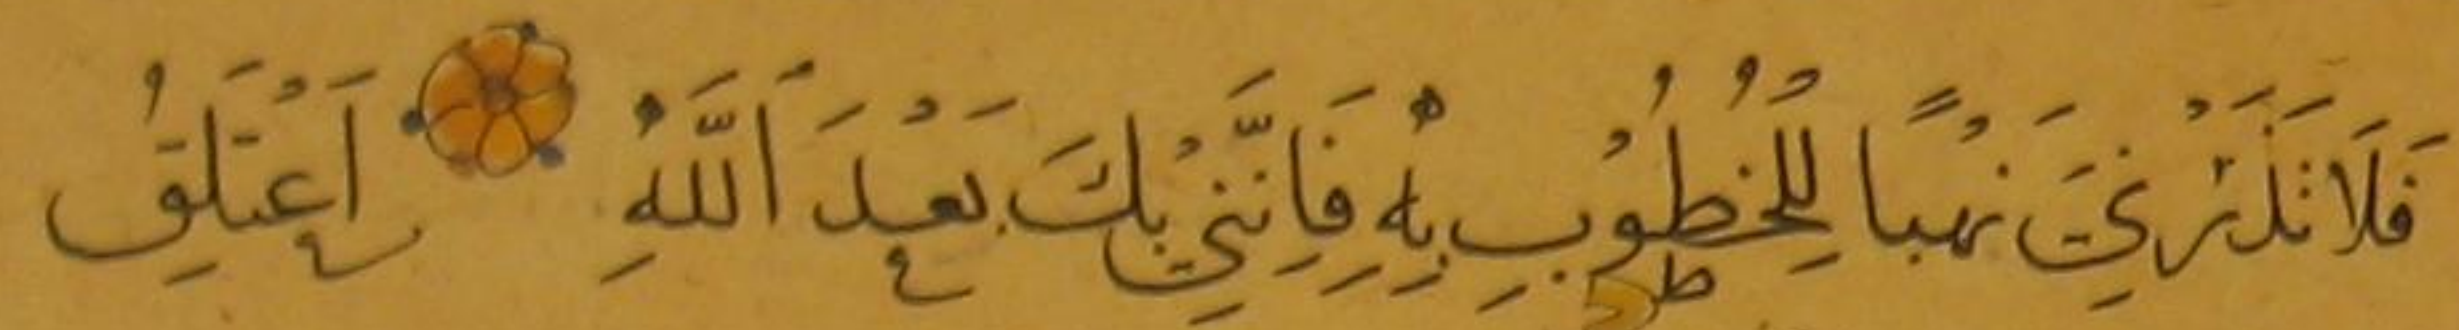 فَلَا تَذَرْنِيَ نَهْبًا لِلْخُطُوبِ بِهِ فَاِنَّنِيْ بِكَ بَعْدَ اَللّٰهِ اَعْتَلِقُ